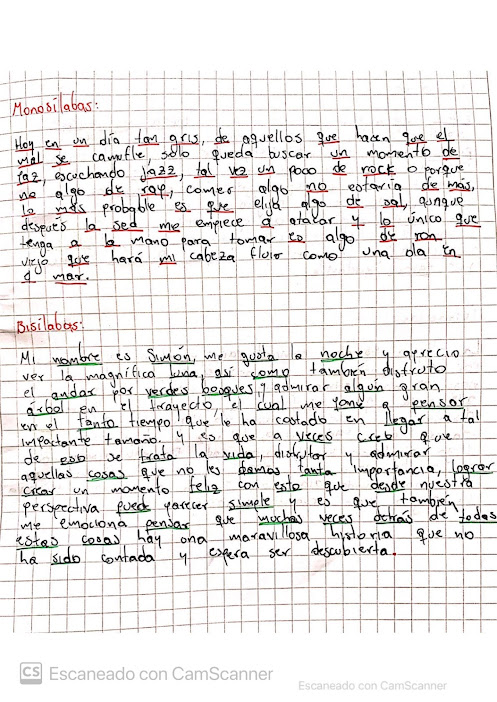 Monosílabas:
Hoy en un día tan gris, de aquellos que hacen que el
mal se camufle, sólo queda buscar un momento de
paz, escuchando jazz, tal vez un poco de rock o porque
no algo de rap, comer algo no estaría de más,
lo más probable es que elija algo de sal, aunque
después la sed me empiece a atacar y lo único que
tenga a la mano para tomar es algo de ron
viejo que hará mi cabeza fluir como una ola en
el mar.
Bisílabas:
Mi nombre es Simón, me gusta la noche y aprecio
ver la magnífica luna, así como también disfruto
el andar por verdes bosques y admirar algún gran
árbol en el trayecto, el cual me pone a pensar
en el tanto tiempo que le ha costado en llegar a tal
impactante tamaño. Y es que a veces creo que
de eso se trata la vida, disfrutar y admirar
aquellas cosas que no les damos tanta importancia, lograr
crear un momento feliz con esto que desde nuestra
perspectiva puede parecer simple y es que también
me emociona pensar que muchas veces detrás de todas
estas cosas hay una maravillosa historia que no
ha sido contada y espera ser descubierta.
CS Escaneado con CamScanner
Escaneado con CamScanner